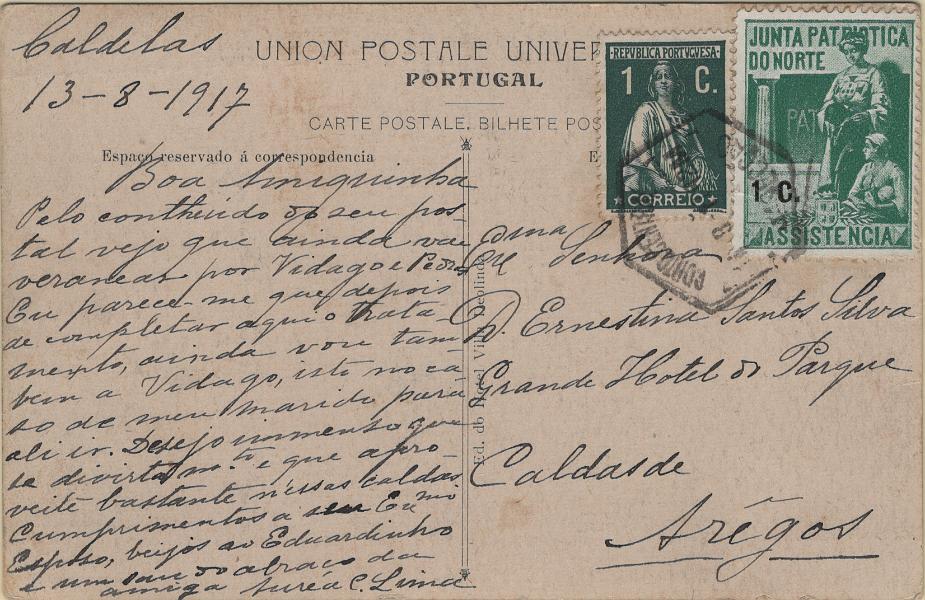 Caldelas
13-8-1917
UNION POSTALE UNIVER
PORTUGAL
CARTE POSTALE, BILHETE POS
Espaço reservado á correspondencia
E
REPVBLICA PORTVGVESA
1 C.
CORREIO
JUNTA PATRIOTICA
DO NORTE
PAT
1 C.
ASSISTENCIA
Boa Amiguinha
Pelo contheudo do seu pos-
tal vejo que ainda vae
veranear por Vidago e Pedras
Eu parece-me que depois
de completar aqui o trata-
mento, ainda vou tam-
bem a Vidago, isto no ca
so de meu marido para
ali ir. Desejo immenso que
se divirta m.to e que apro-
veite bastante nessas caldas
Cumprimentos a seu Exmo
Esposo, beijos ao Eduardinho
e um saudoso abraço da
amiga Aurea C. Lima
Ed. do Hotel Vil Deolinda
Exma Senhora
D. Ernestina Santos Silva
Grande Hotel do Parque
Caldas de
Arêgos